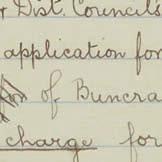 Dist. Council's
application for
of Buncra
charge for